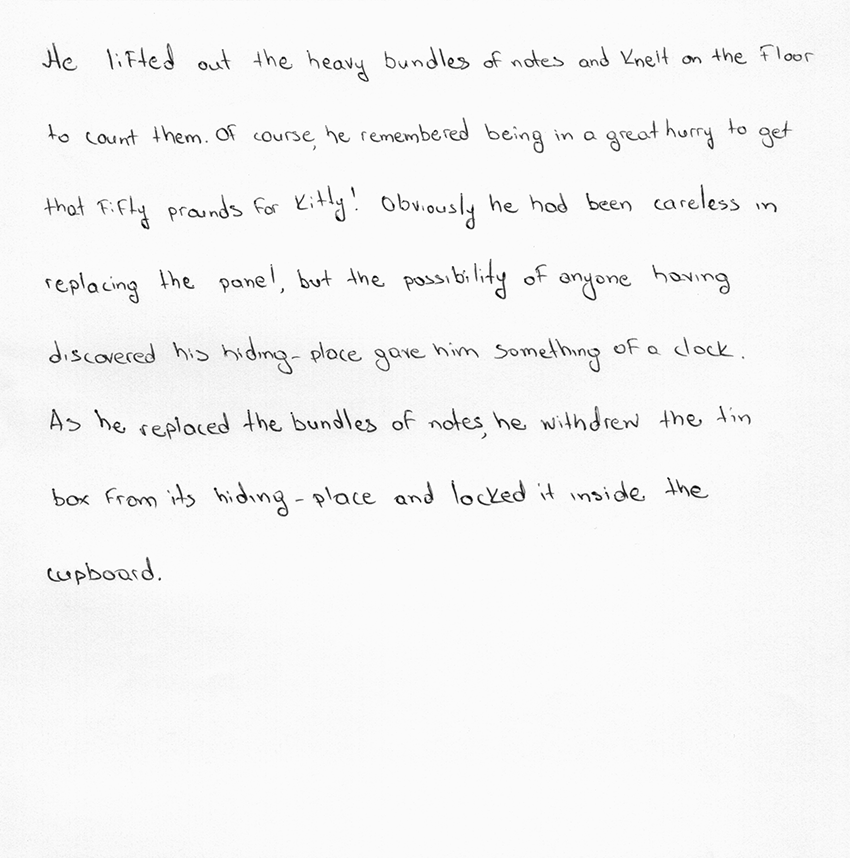 He lifted out the heavy bundles of notes and knelt on the floor
to count them. Of course, he remembered being in a great hurry to get
that fifty prounds for Kitty! Obviously he had been careless in
replacing the panel, but the possibility of anyone having
discovered his hiding-place gave him something of a clock.
As he replaced the bundles of notes, he withdrew the tin
box from its hiding-place and locked it inside the
cupboard.